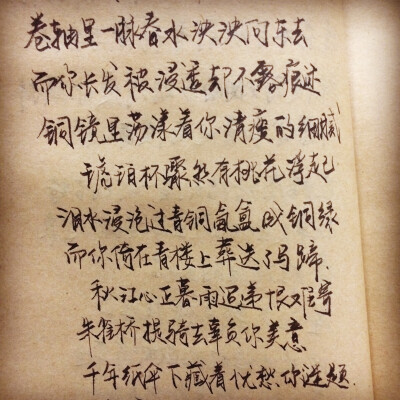 卷轴里一脉春水泱泱向东去
而你长发被浸透却不露痕迹
铜镜里荡漾着你清瘦的细腻
琥珀杯骤然有桃花浮起
泪水浸泡过青铜氤氲成铜绿
而你倚在青楼上葬送了马蹄.
秋江心正暮雨迢递恨难寄
朱雀桥提骑去辜负你美意
千年纸伞下藏着忧愁你谜题.